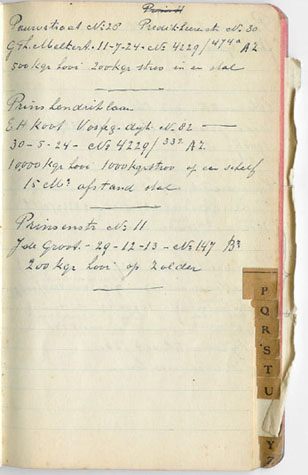 Paurostraat No 28 Predikheerenstr No 30
G Th. Melkert - 11-7-24 - No 4229/474a A2
500 kgr hooi 200 kgr stroo in een stal
Prins hendriklaan
E H Koot Vosseg-dijk No 82 —
30-5-24 - No 4229/335 A2
10000 kgr hooi 1000 kgr stroo op een schelf
15 Mr afstand stal
Prinsenstr No 11
J de Groot - 29-12-13 - No 147 Br
200 kgr hooi op zolder
P
Q
R
S
T
U
Y
Z